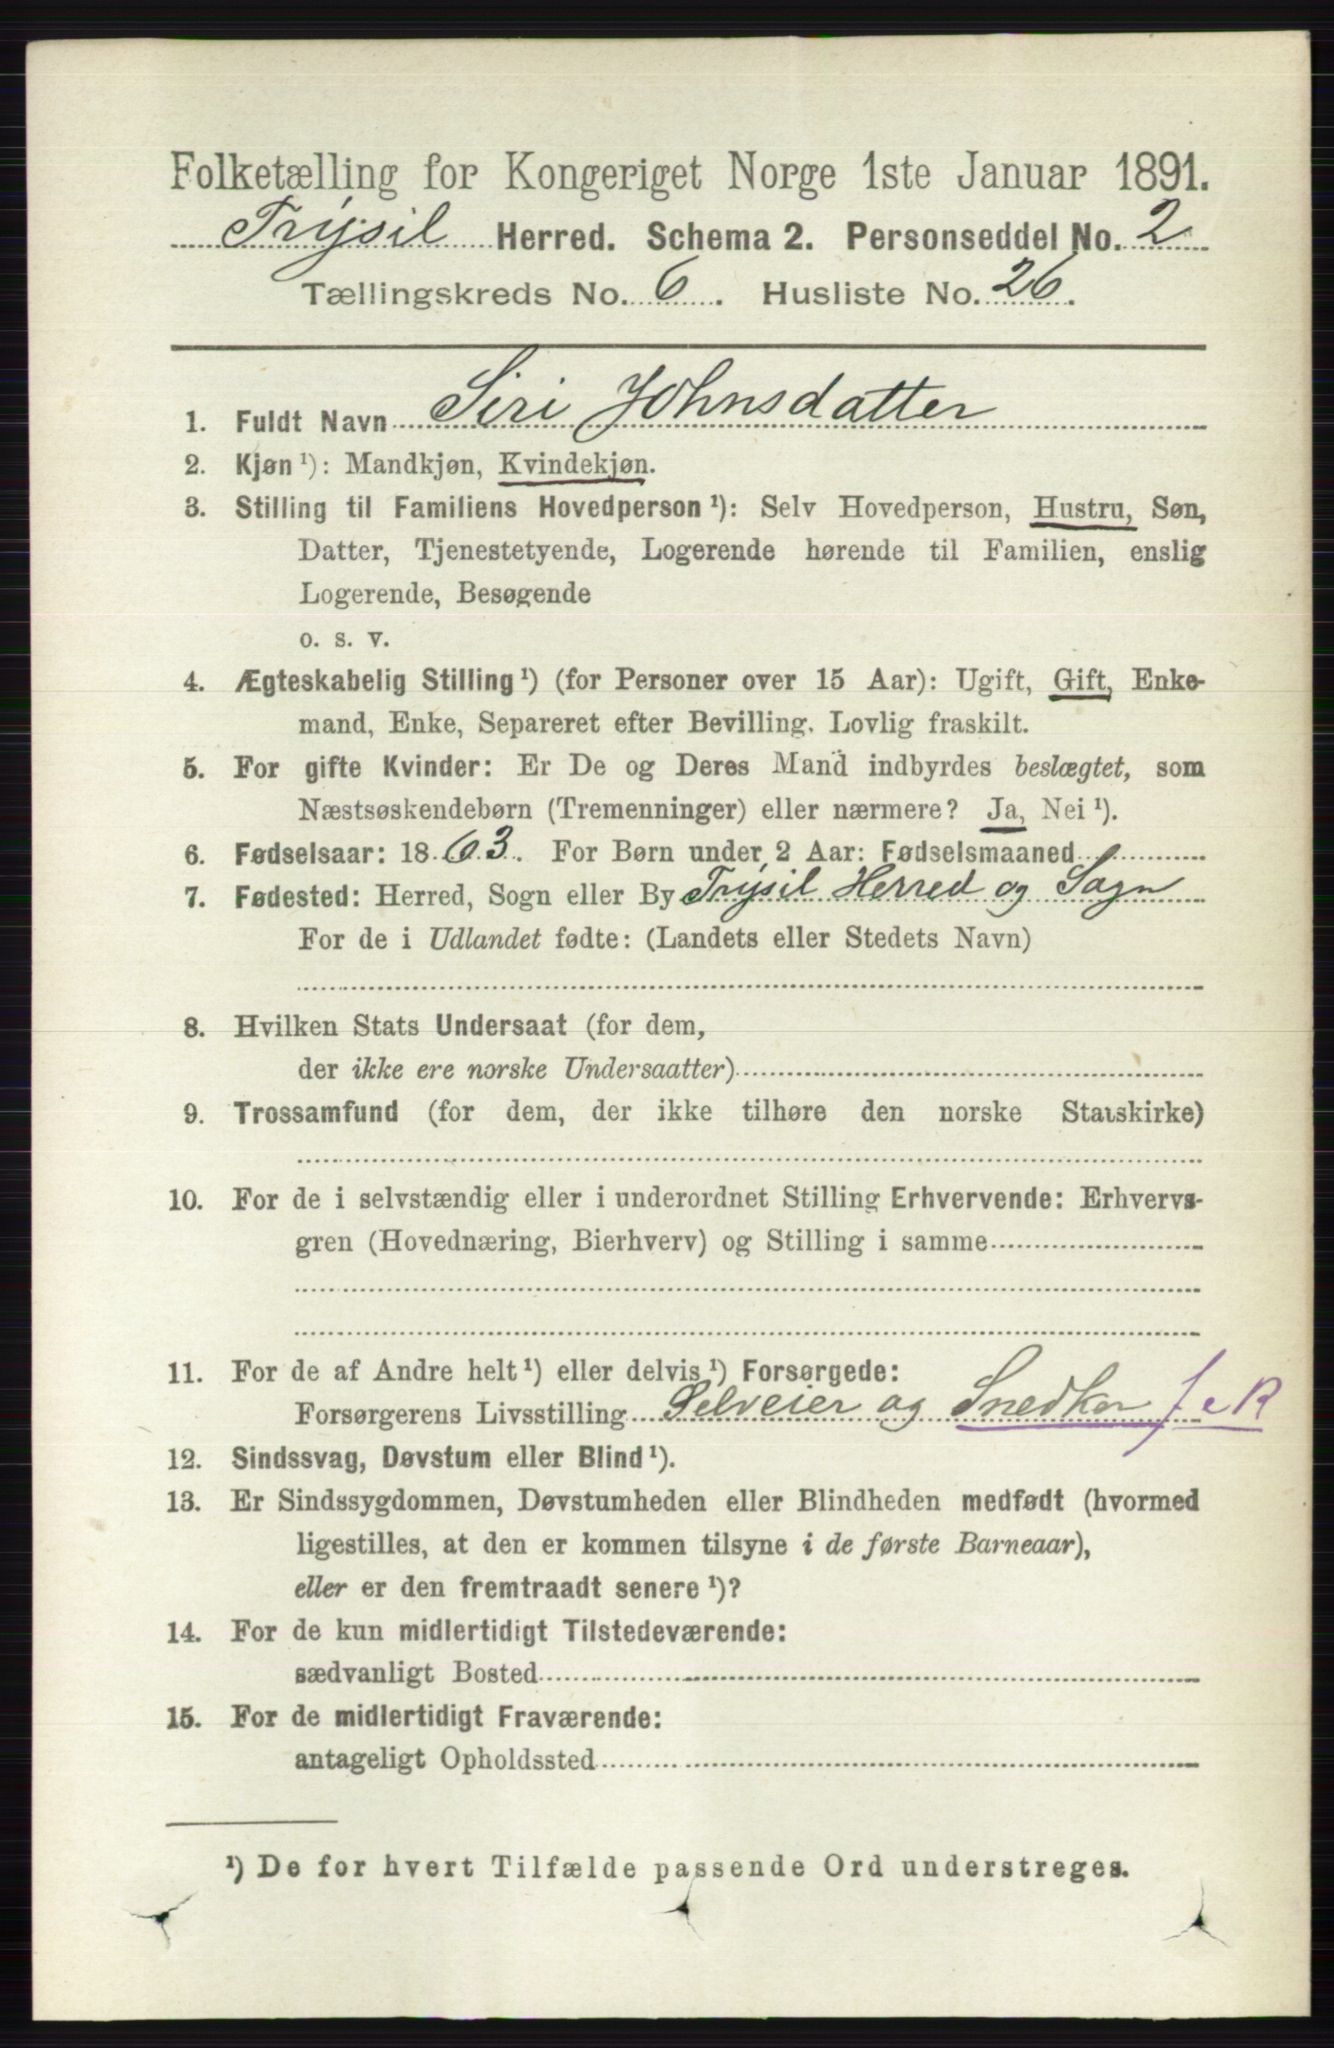 Folketælling for Kongeriget Norge 1ste Januar 1891.
Trysil Herred. Schema 2. Personseddel No. 2
Tællingskreds No. 6. Husliste No. 26.
1. Fuldt Navn Siri Johnsdatter
2. Kjøn ¹): Mandkjøn, Kvindekjøn.
3. Stilling til Familiens Hovedperson ¹): Selv Hovedperson, Hustru, Søn,
Datter, Tjenestetyende, Logerende hørende til Familien, enslig
Logerende, Besøgende
o. s. v.
4. Ægteskabelig Stilling ¹) (for Personer over 15 Aar): Ugift, Gift, Enke-
mand, Enke, Separeret efter Bevilling. Lovlig fraskilt.
5. For gifte Kvinder: Er De og Deres Mand indbyrdes beslægtet, som
Næstsøskendebørn (Tremenninger) eller nærmere? Ja, Nei ¹).
6. Fødselsaar: 1863. For Børn under 2 Aar: Fødselsmaaned
7. Fødested: Herred, Sogn eller By Trysil Herred og Sogn
For de i Udlandet fødte: (Landets eller Stedets Navn)
8. Hvilken Stats Undersaat (for dem,
der ikke ere norske Undersaatter)
9. Trossamfund (for dem, der ikke tilhøre den norske Statskirke)
10. For de i selvstændig eller i underordnet Stilling Erhvervende: Erhvervs-
gren (Hovednæring, Bierhverv) og Stilling i samme
11. For de af Andre helt ¹) eller delvis ¹) Forsørgede:
Forsørgerens Livsstilling Selveier og Snedker
12. Sindssvag, Døvstum eller Blind ¹).
13. Er Sindssygdommen, Døvstumheden eller Blindheden medfødt (hvormed
ligestilles, at den er kommen tilsyne i de første Barneaar),
eller er den fremtraadt senere ¹)?
14. For de kun midlertidigt Tilstedeværende:
sædvanligt Bosted
15. For de midlertidigt Fraværende:
antageligt Opholdssted
¹) De for hvert Tilfælde passende Ord understreges.